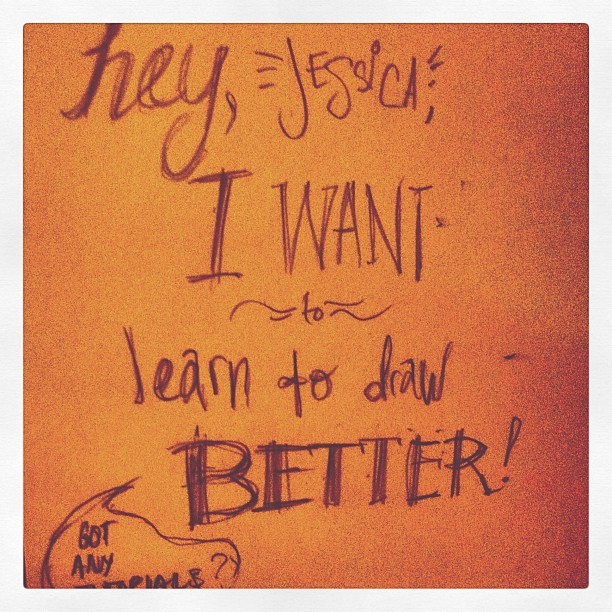 hey, JESSICA,
I WANT
to
learn to draw
BETTER!
GOT
ANY
TUTORIALS?